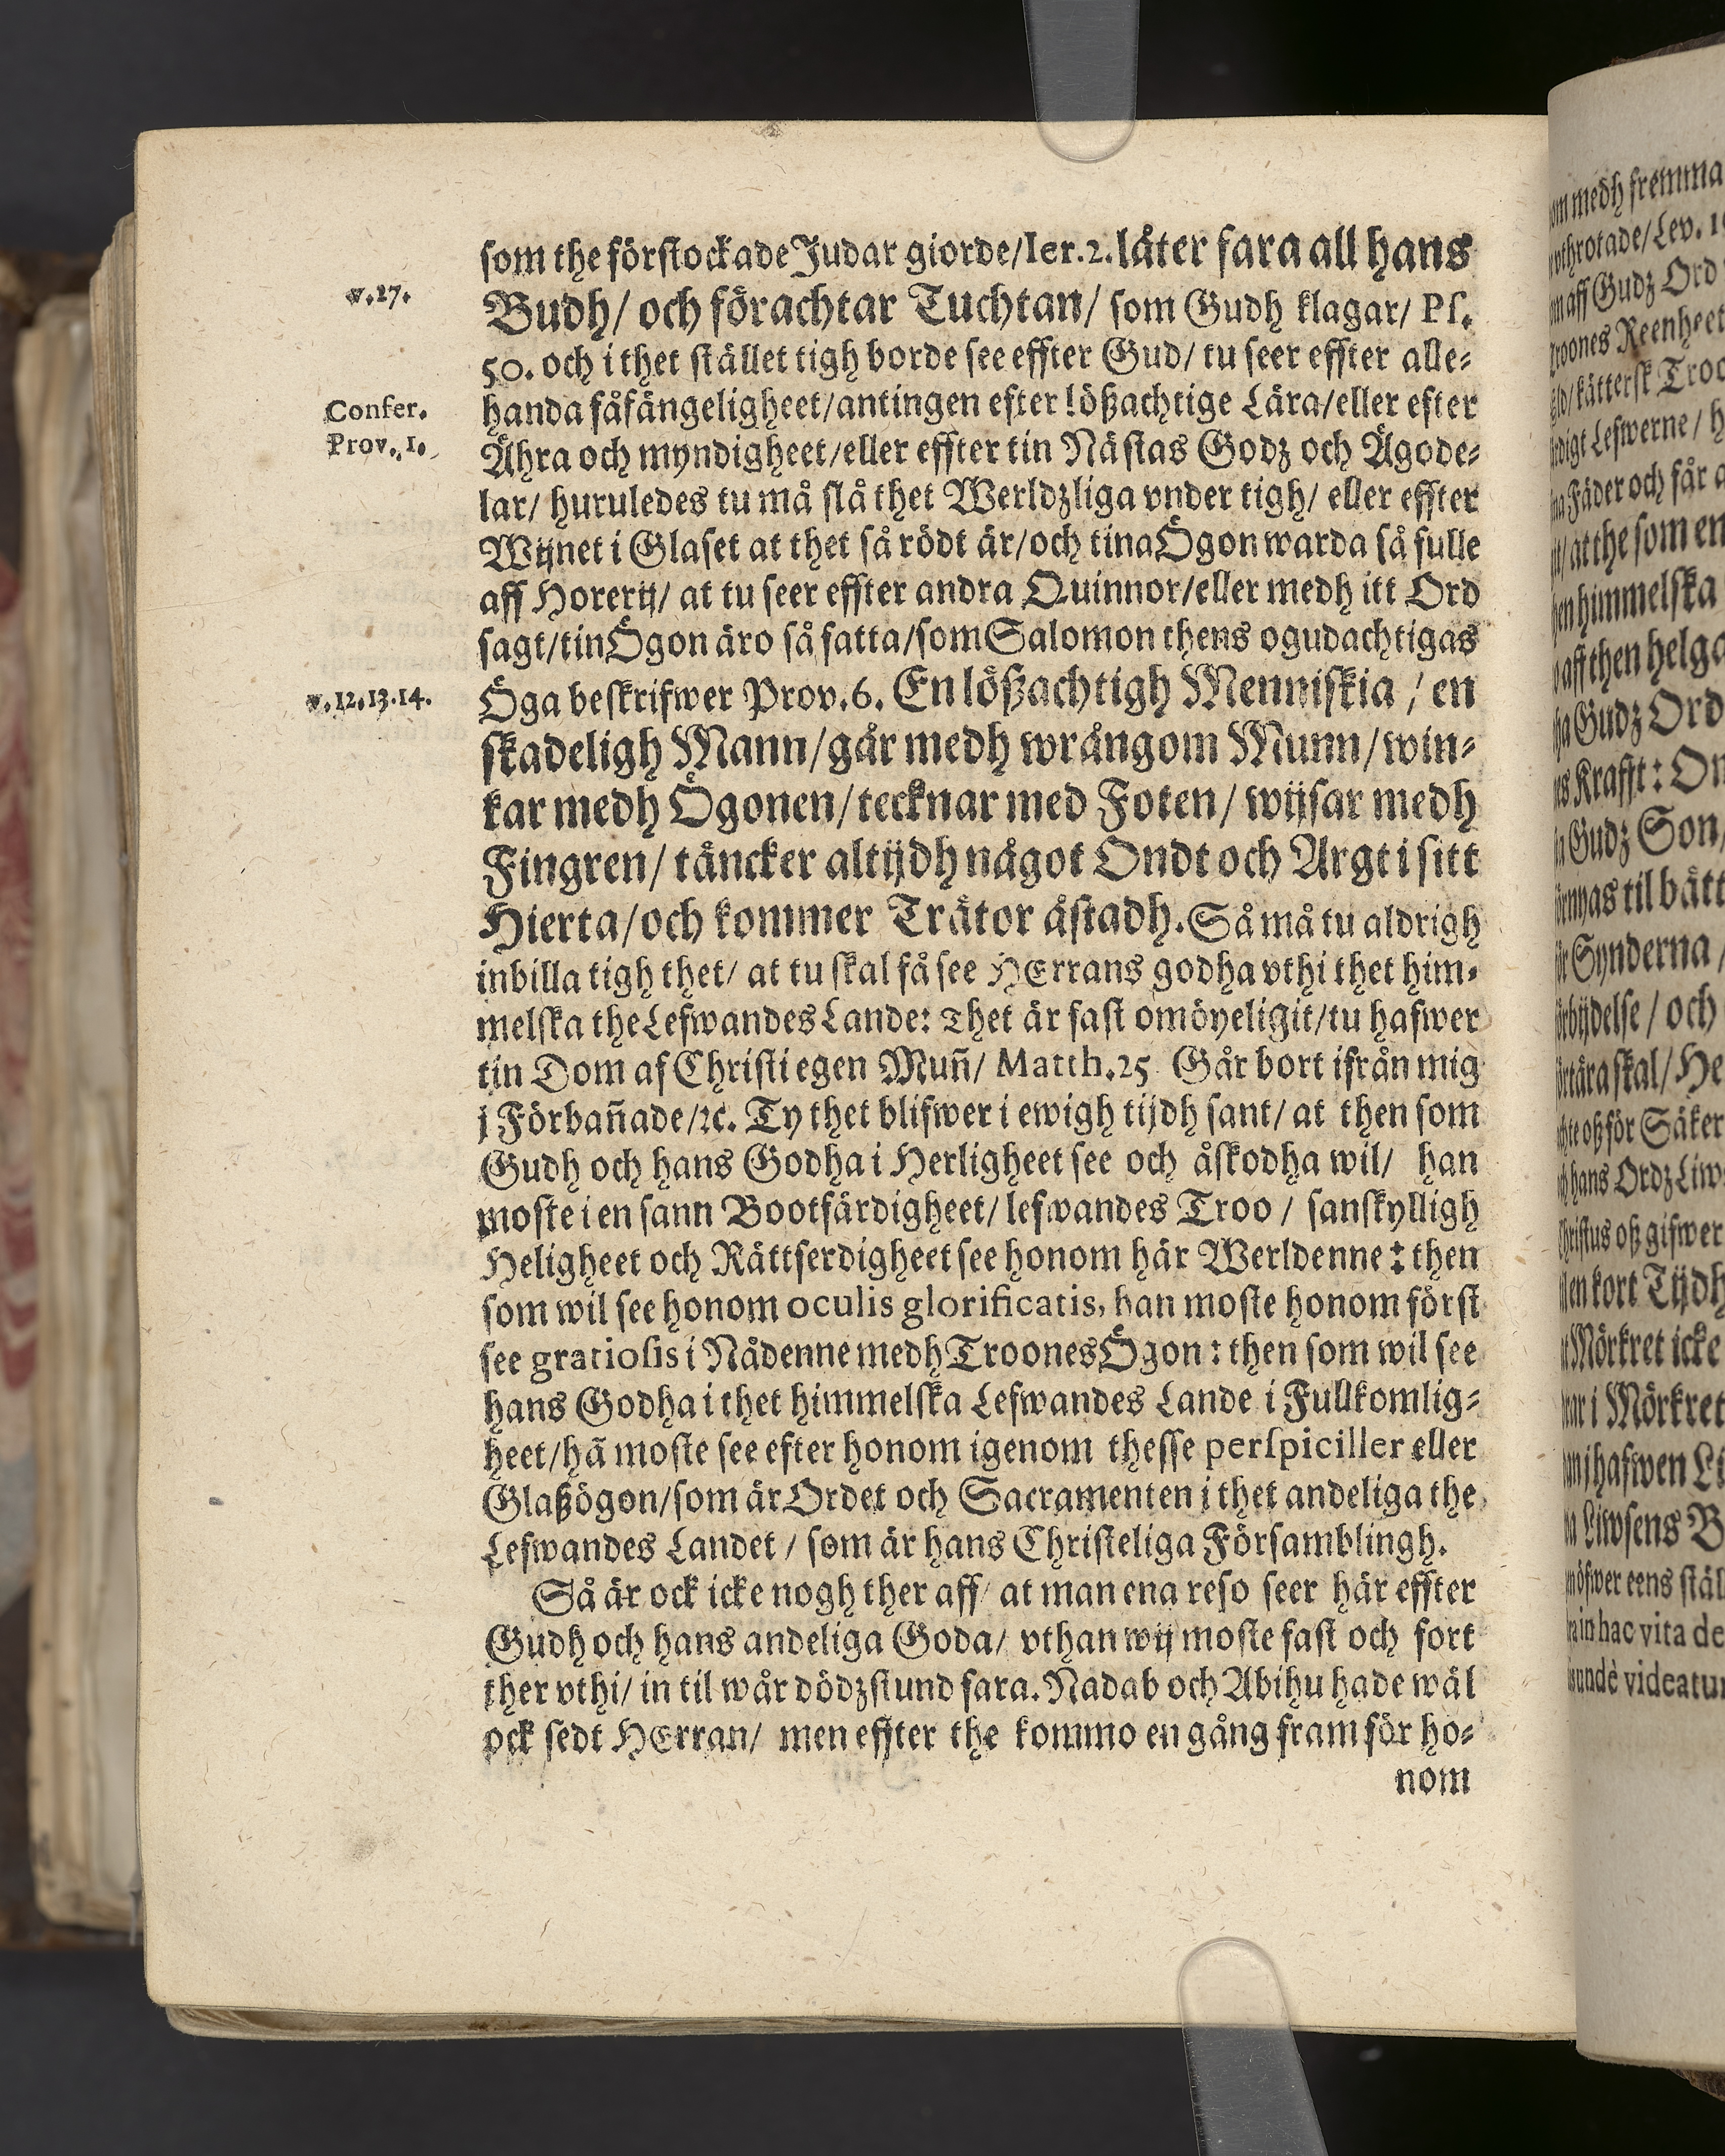 som the förstockade Judar giorde/Ier.2. låter fara all hans
v.27.
Budh/ och förachtar Tuchtan/ som Gudh klagar/ Ps.
50. och i thet stället tigh borde see effter Gud/ tu seer effter alle-
Confer.
handa fåfängeligheet/antingen efter lößachtige Lära/eller efter
Prov.1.
Ähra och myndigheet/eller effter tin Nästas Godz och Ägode-
lar/ huruledes tu må slå thet Werldzliga vnder tigh/ eller effter
Wijnet i Glaset at thet så rödt är/och tina Ögon warda så fulle
aff Horerij/ at tu seer effter andra Quinnor/eller medh itt Ord
sagt/tin Ögon äro så satta/som Salomon thens ogudachtigas
v.12.13.14.
Öga beskrifwer Prov.6. En lößachtigh Menniskia / en
skadeligh Mann/går medh wrångom Munn/win-
kar medh Ögonen/tecknar med Foten/ wijsar medh
Fingren/ täncker altijdh något Ondt och Argt i sitt
Hierta/och kommer Trätor åstadh. Så må tu aldrigh
inbilla tigh thet/ at tu skal få see HErrans godha vthi thet him-
melska the Lefwandes Lande: Thet är fast omöyeligit/tu hafwer
tin Dom af Christi egen Muñ/ Matth.25 Går bort ifrån mig
j Förbañade/ꝛc. Ty thet blifwer i ewigh tijdh sant/ at then som
Gudh och hans Godha i Herligheet see och åskodha wil/ han
moste i en sann Bootfärdigheet/ lefwandes Troo / sanskylligh
Heligheet och Rättferdigheet see honom här Werldenne: then
som wil see honom oculis glorificatis, han moste honom först
see gratiosis i Nådenne medh Troones Ögon: then som wil see
hans Godha i thet himmelska Lefwandes Lande i Fullkomlig-
heet/hã moste see efter honom igenom thesse perspiciller eller
Glaßögon/som är Ordet och Sacramenten i thet andeliga the
Lefwandes Landet / som är hans Christeliga Församblingh.
Så är ock icke nogh ther aff/ at man ena reso seer här effter
Gudh och hans andeliga Goda/ vthan wij moste fast och fort
ther vthi/ in til wår dödzstund fara. Nadab och Abihu hade wäl
ock sedt HErran/ men effter the kommo en gång fram för ho-
nom
medh fremma
Gudz Ord
Reenheet
kättersk
Lefwerne/
Fäder och får
at the som en
himmelska
aff then helga
Gudz Ord
Krafft: On
Gudz Son,
til bätt
Synderna,
/ och
skal/ He
oß för Säker
hans Ordz Liw
oß gifwer
en kort Tijdh
Mörkret icke
i Mörkret
hafwen Li
Liwsens B
eens stäl
in hac vita de
videatur